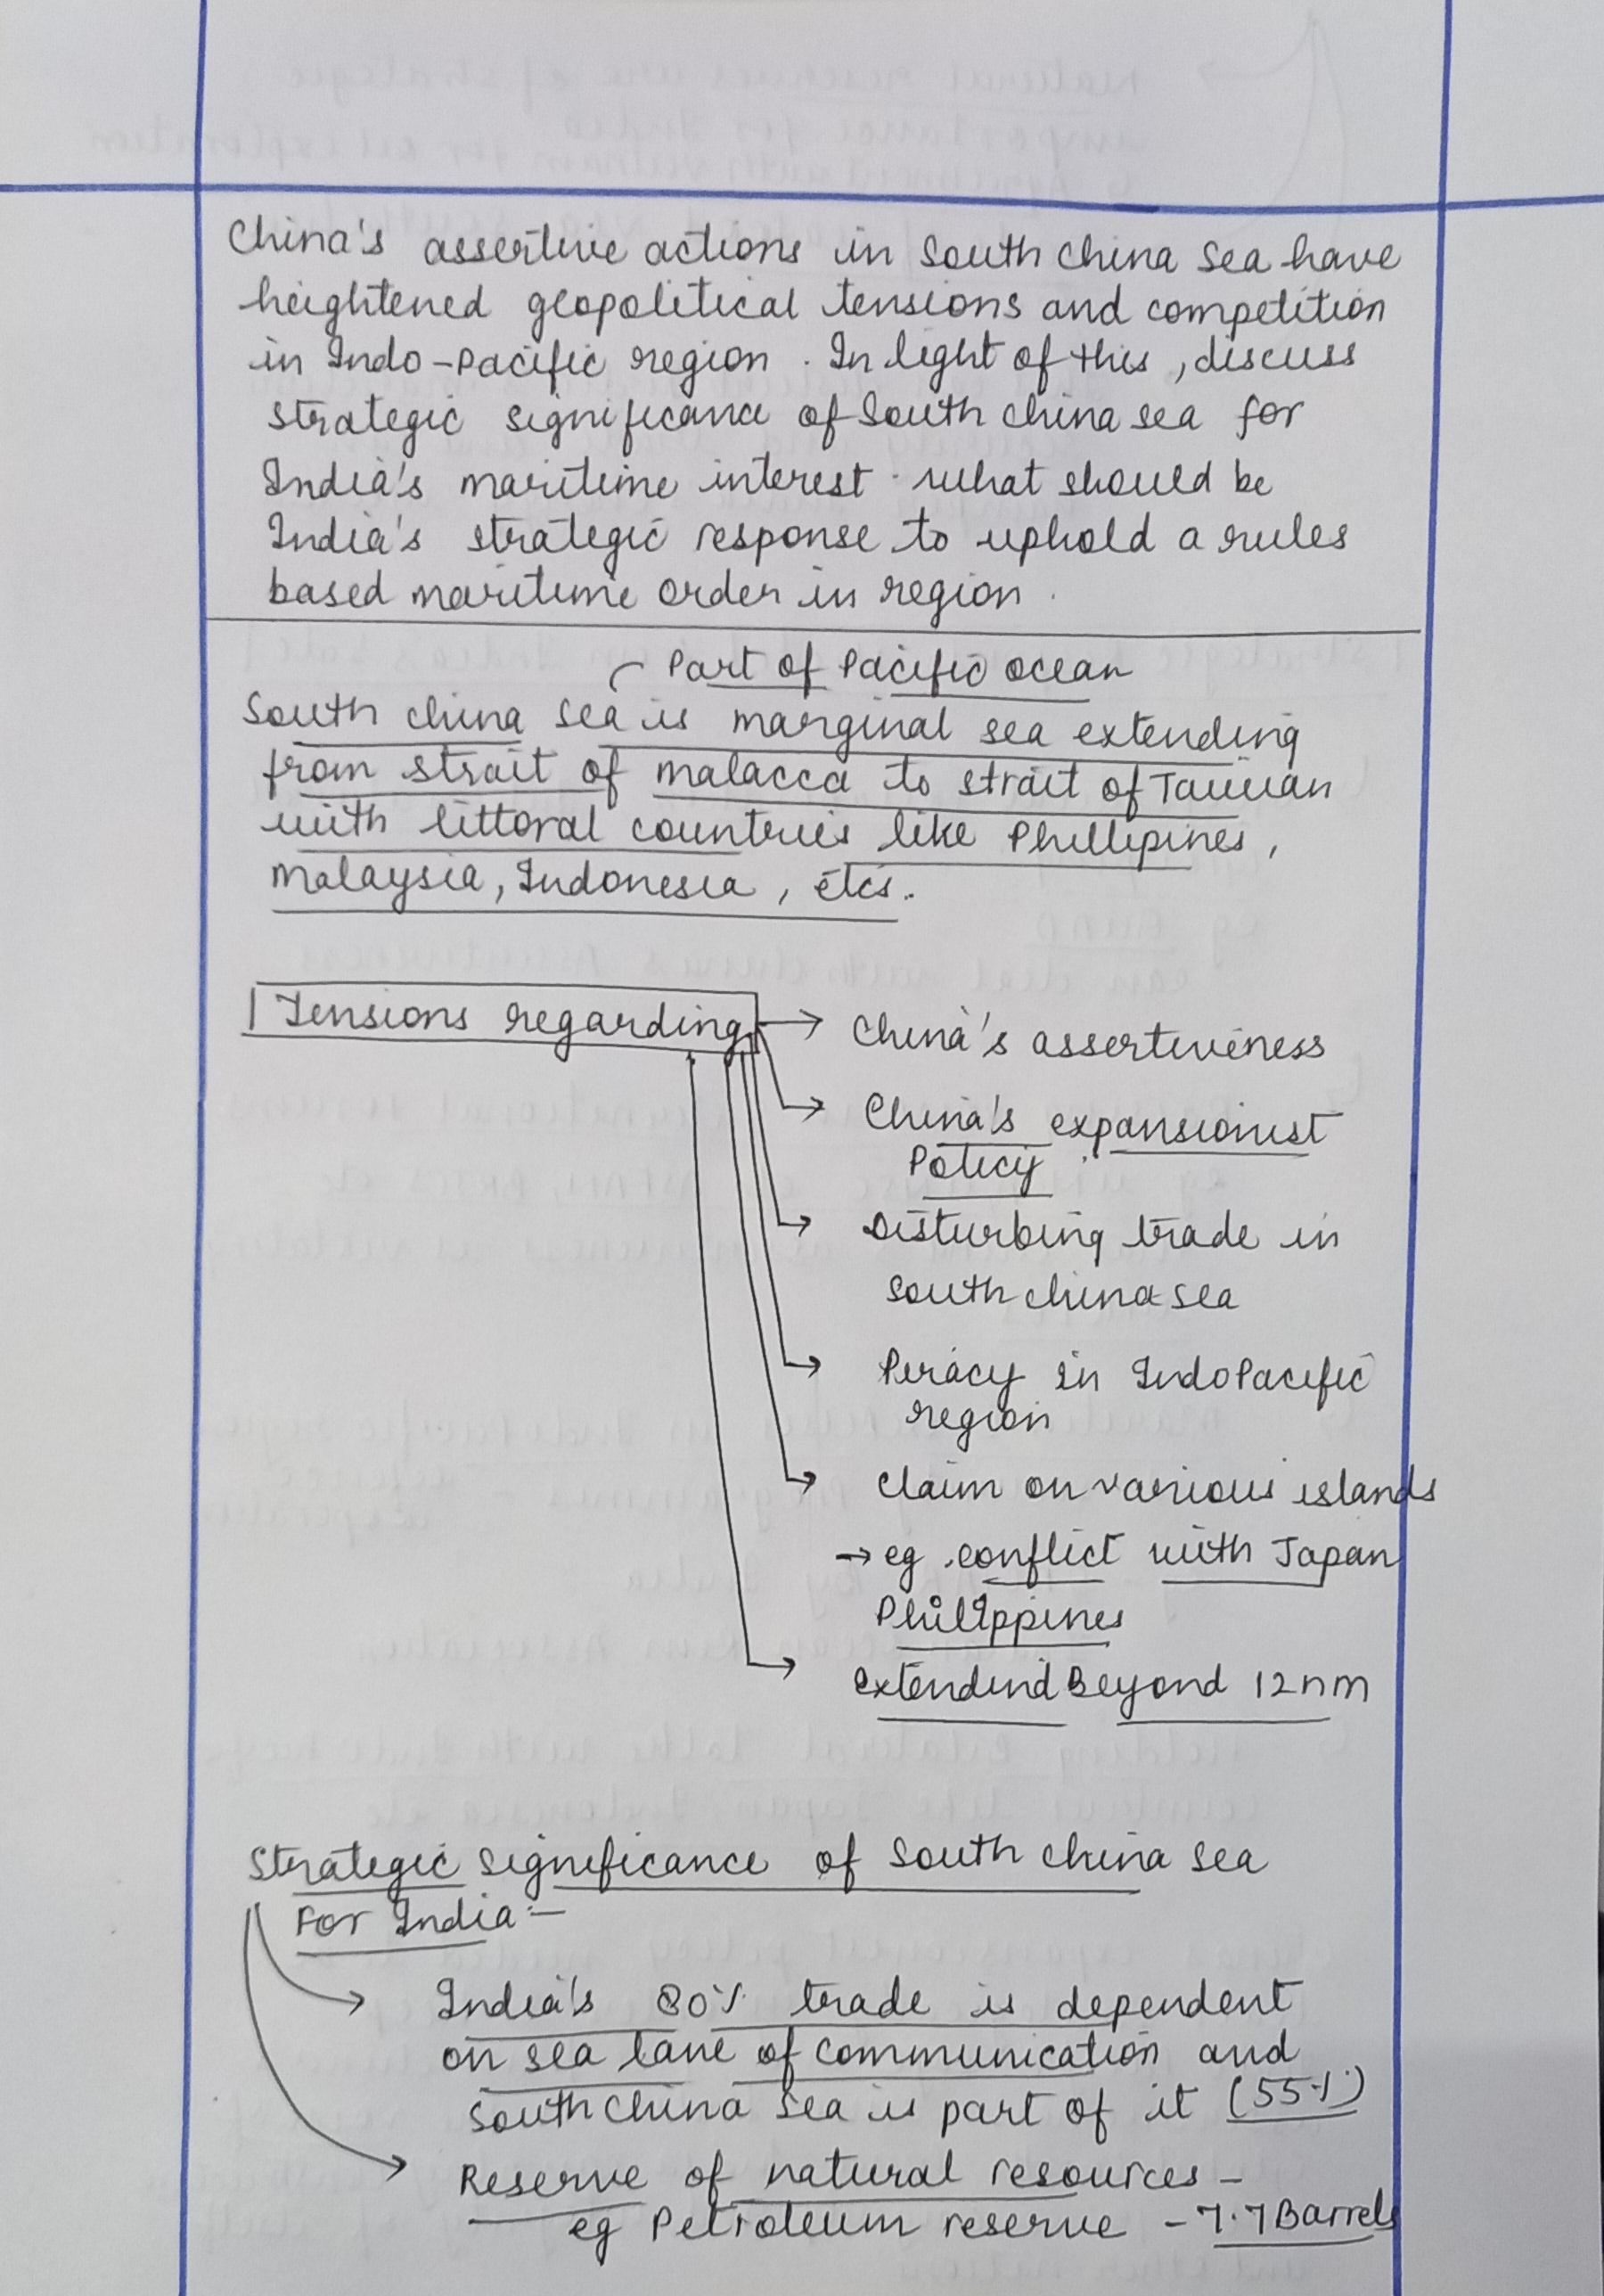 China's assertive actions in South China Sea have
heightened geopolitical tensions and competition
in Indo-Pacific region. In light of this, discuss
strategic significance of South China Sea for
India's maritime interest. what should be
India's strategic response to uphold a rules
based maritime order in region.
Part of Pacific ocean
South China Sea is marginal sea extending
from strait of malacca to strait of Taiwan
with littoral countries like Phillipines,
malaysia, Indonesia, etcs.
Tensions regarding
China's assertiveness
China's expansionist
Policy
Disturbing trade in
South China Sea
Piracy in IndoPacific
region
Claim on various islands
→ eg. conflict with Japan
Philippines
extendind Beyond 12nm
Strategic significance of South China Sea
For India:-
India's 80% trade is dependent
on sea lane of communication and
South China Sea is part of it (55%)
Reserve of natural resources -
eg Petroleum reserve - 7.7 Barrels